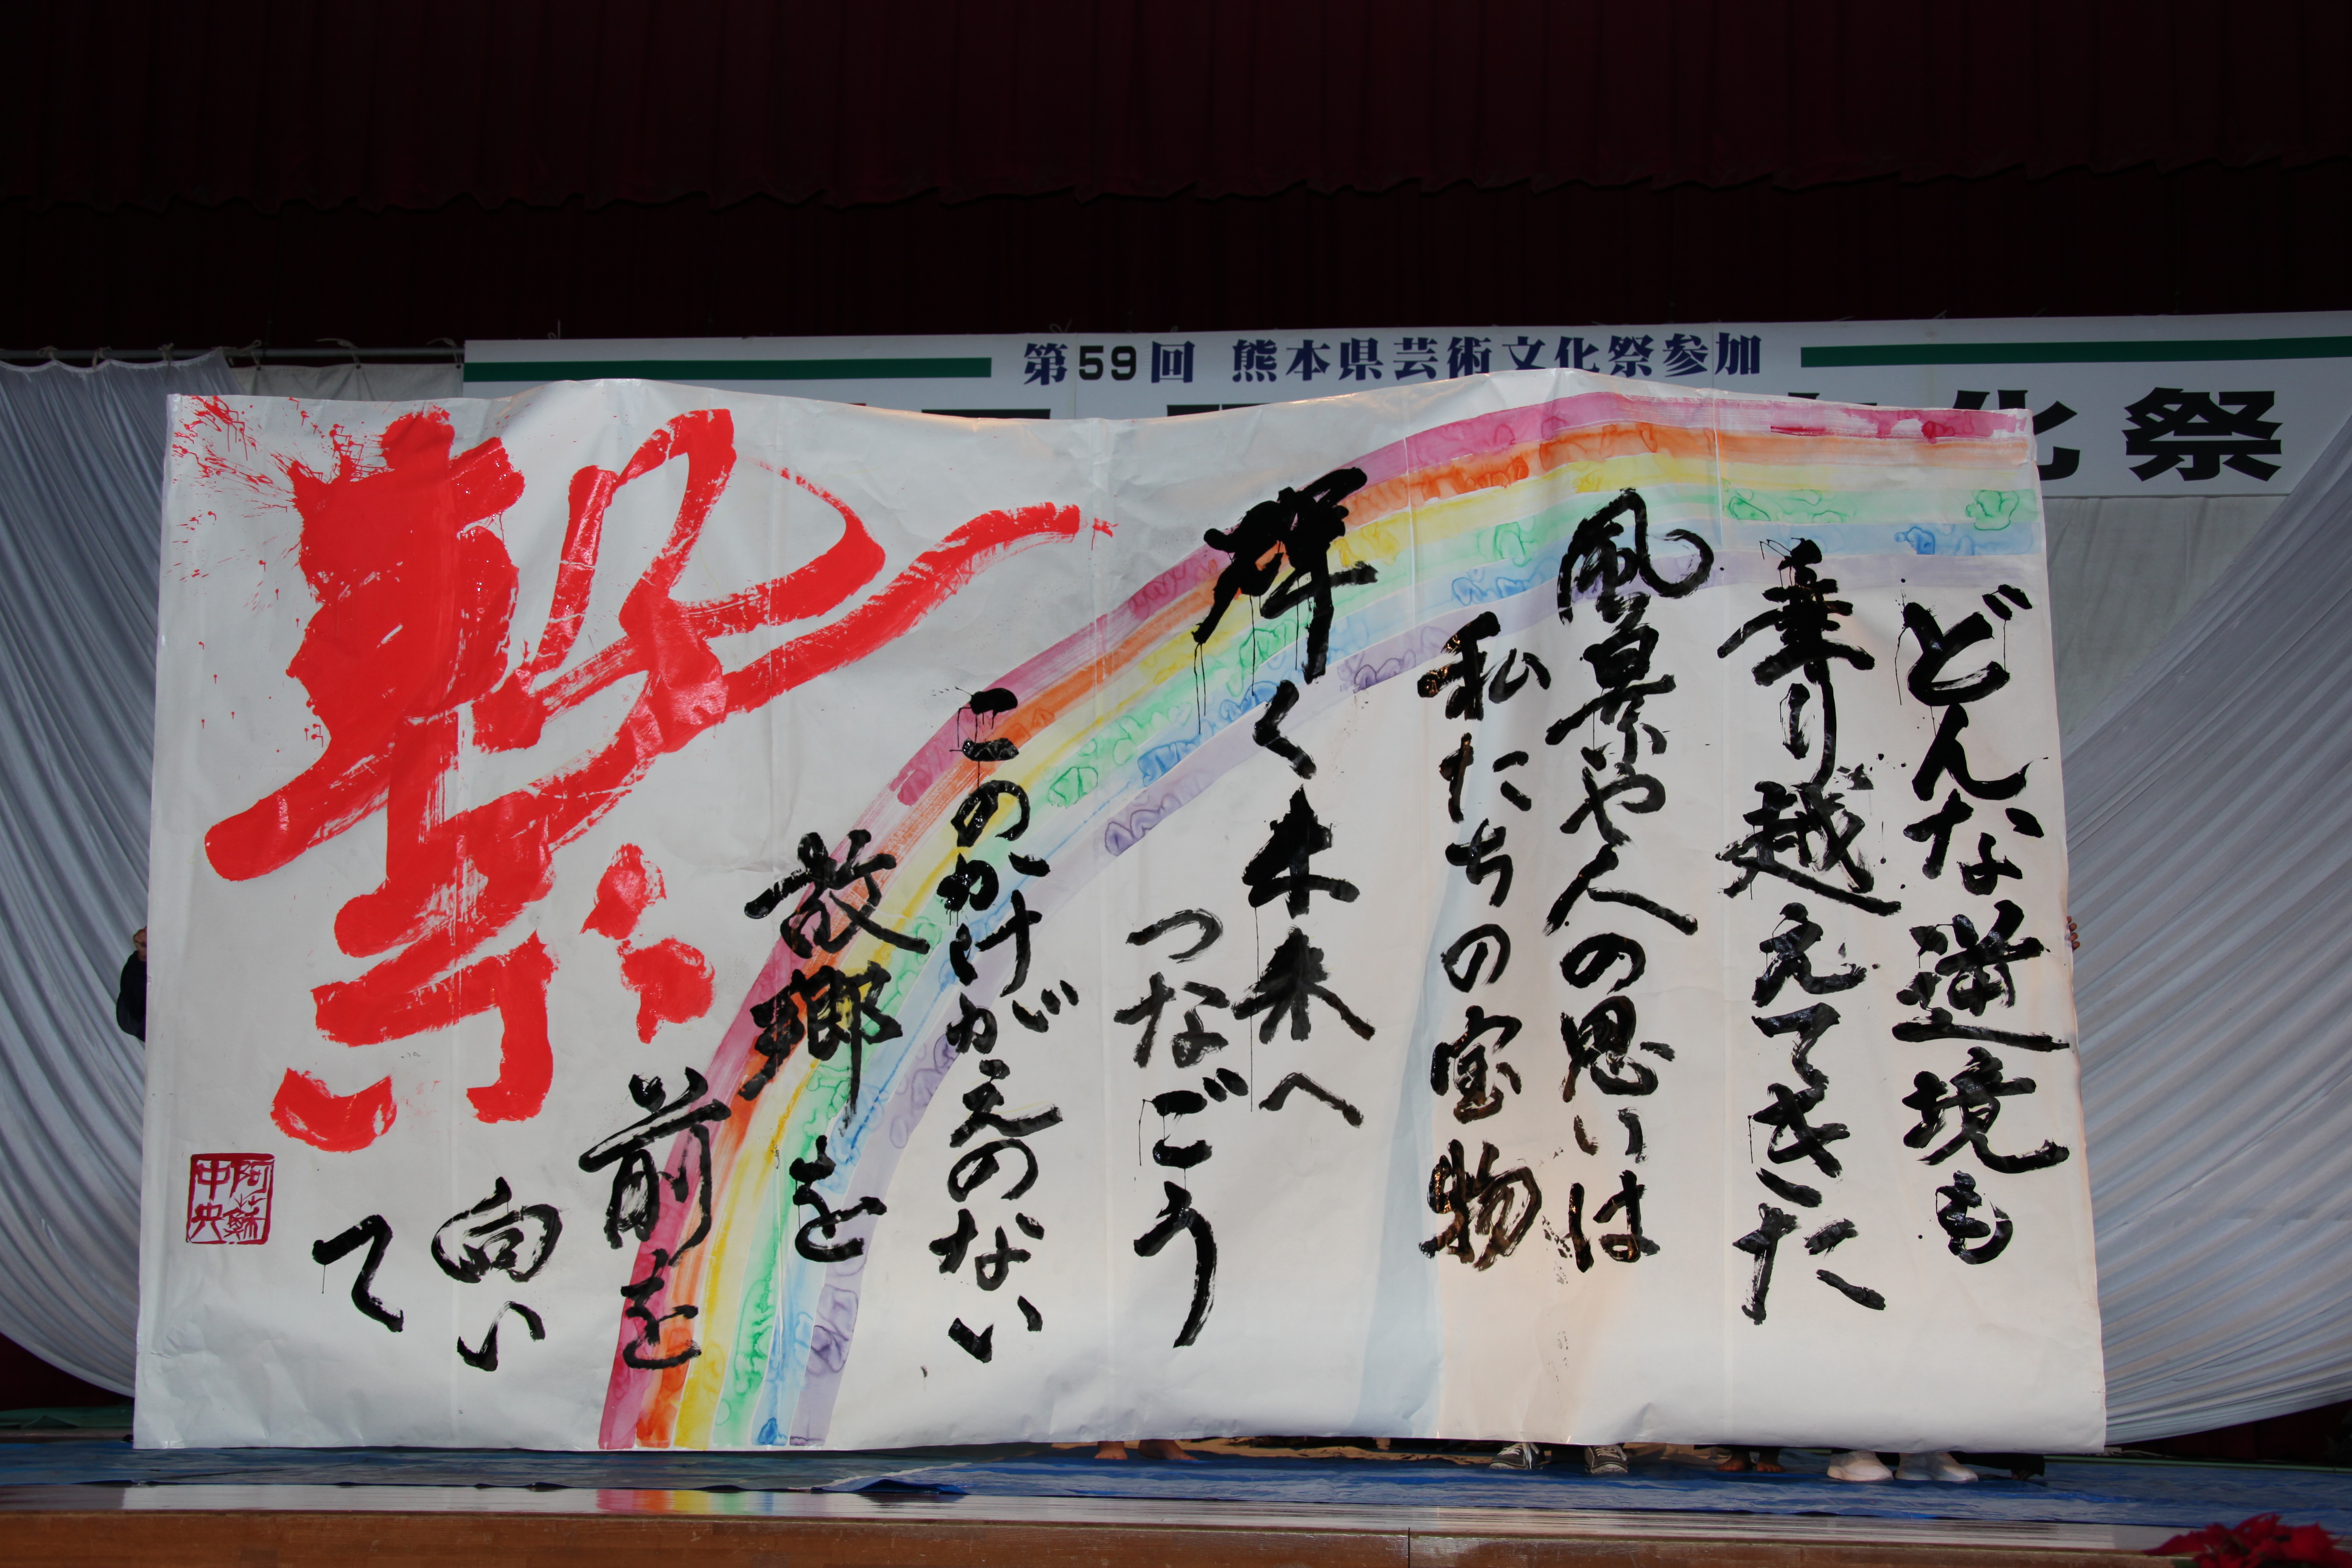 第59回 熊本県芸術文化祭参加
化祭
どんな逆境も
乗り越えてきた
風景や人の思いは
私たちの宝物
輝く未来へ
つなごう
このかけがえのない
故郷を
前を
向い
て
繋
阿蘇
中央